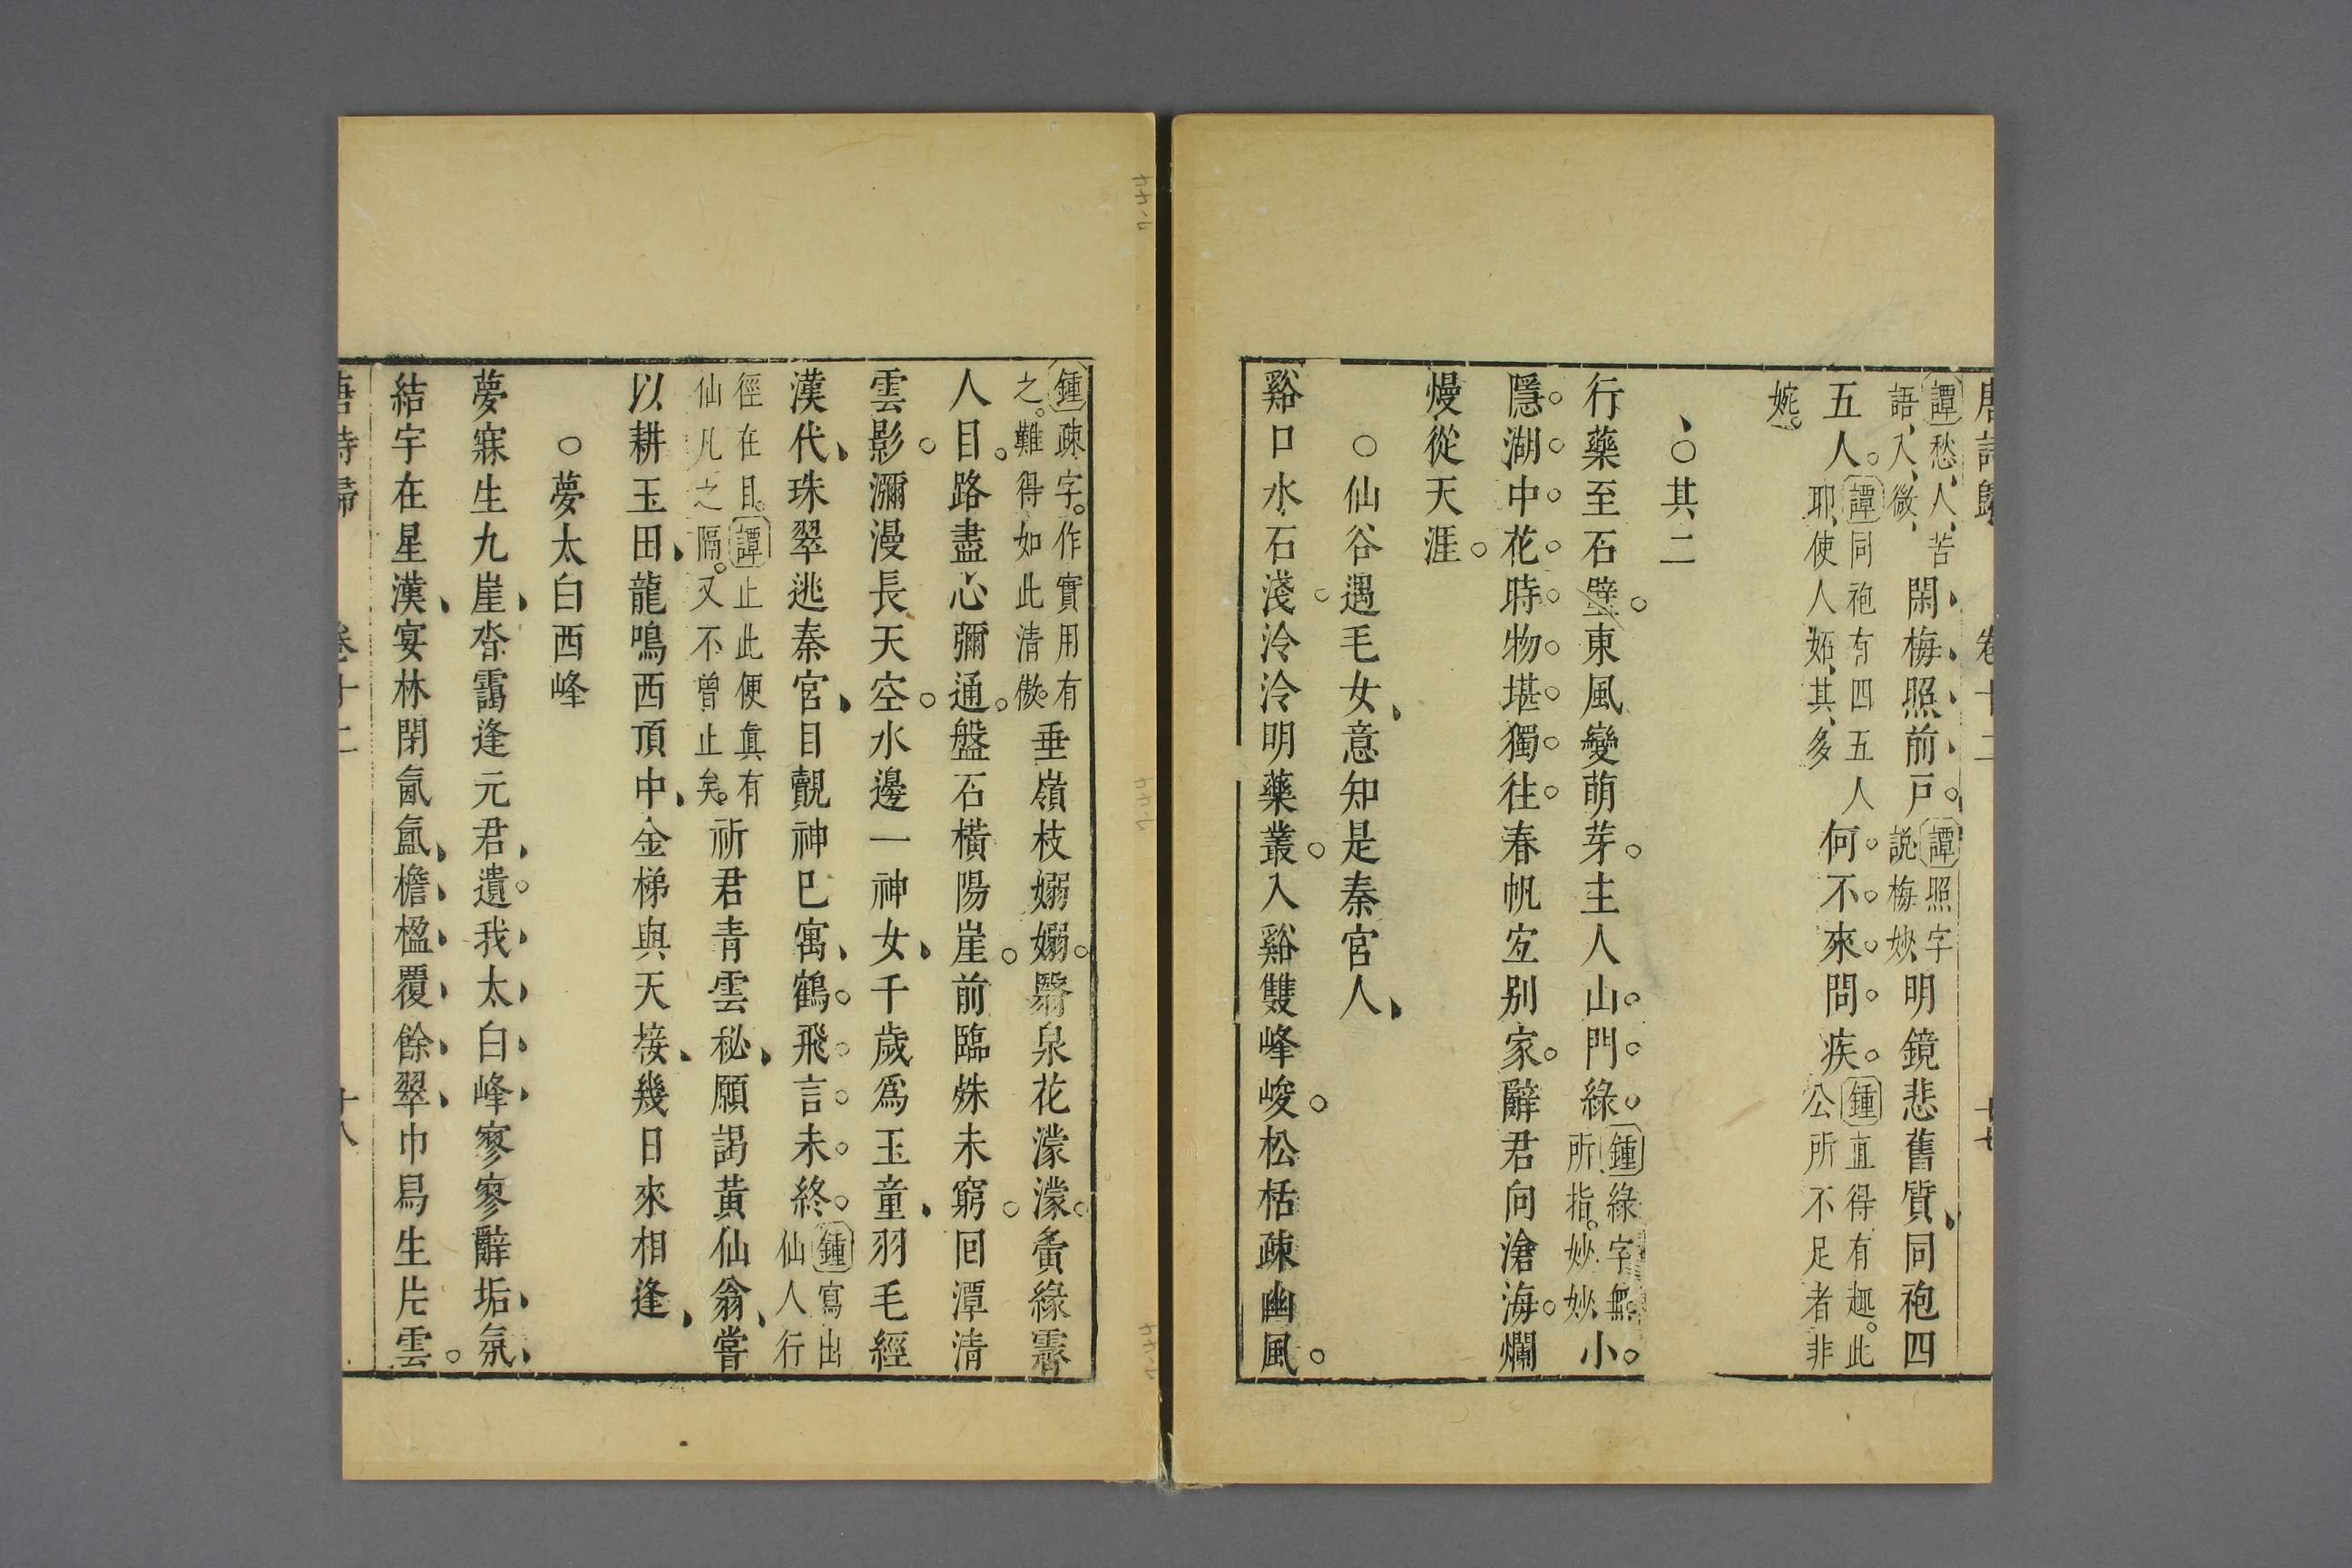 唐詩歸 卷十二 十七
譚愁人苦語入微閑梅照前戸譚照字説梅妙明鏡悲舊質同袍四
五人譚同袍有四五人耶使人妬其多何不來問疾鍾直得有趣此公所不足者非
妮
○其二
行藥至石壁東風變萌芽主人山門綠鍾綠字無所指妙妙小
隱湖中花時物堪獨往春帆宐别家辭君向滄海爛
熳從天涯
○仙谷遇毛女意知是秦宮人
谿口水石淺泠泠明藥叢入谿雙峰峻松栝疎幽風
鍾疎字作實用有之難得如此清傲垂嶺枝嫋嫋翳泉花濛濛夤緣霽
人目路盡心彌通盤石橫陽崖前臨殊未窮囘潭清
雲影瀰漫長天空水邊一神女千歲爲玉童羽毛經
漢代珠翠逃秦宮目覿神巳寓鶴飛言未終鍾寫出仙人行
徑在目譚止此便眞有仙凡之隔又不曾止矣祈君青雲秘願謁黄仙翁嘗
以耕玉田龍鳴西頂中金梯與天接幾日來相逢
○夢太白西峰
夢寐生九崖杳靄逢元君遺我太白峰寥寥辭垢氛
結宇在星漢宴林閉氤氳檐楹覆餘翠巾舄生片雲
唐詩歸 卷十二 十八